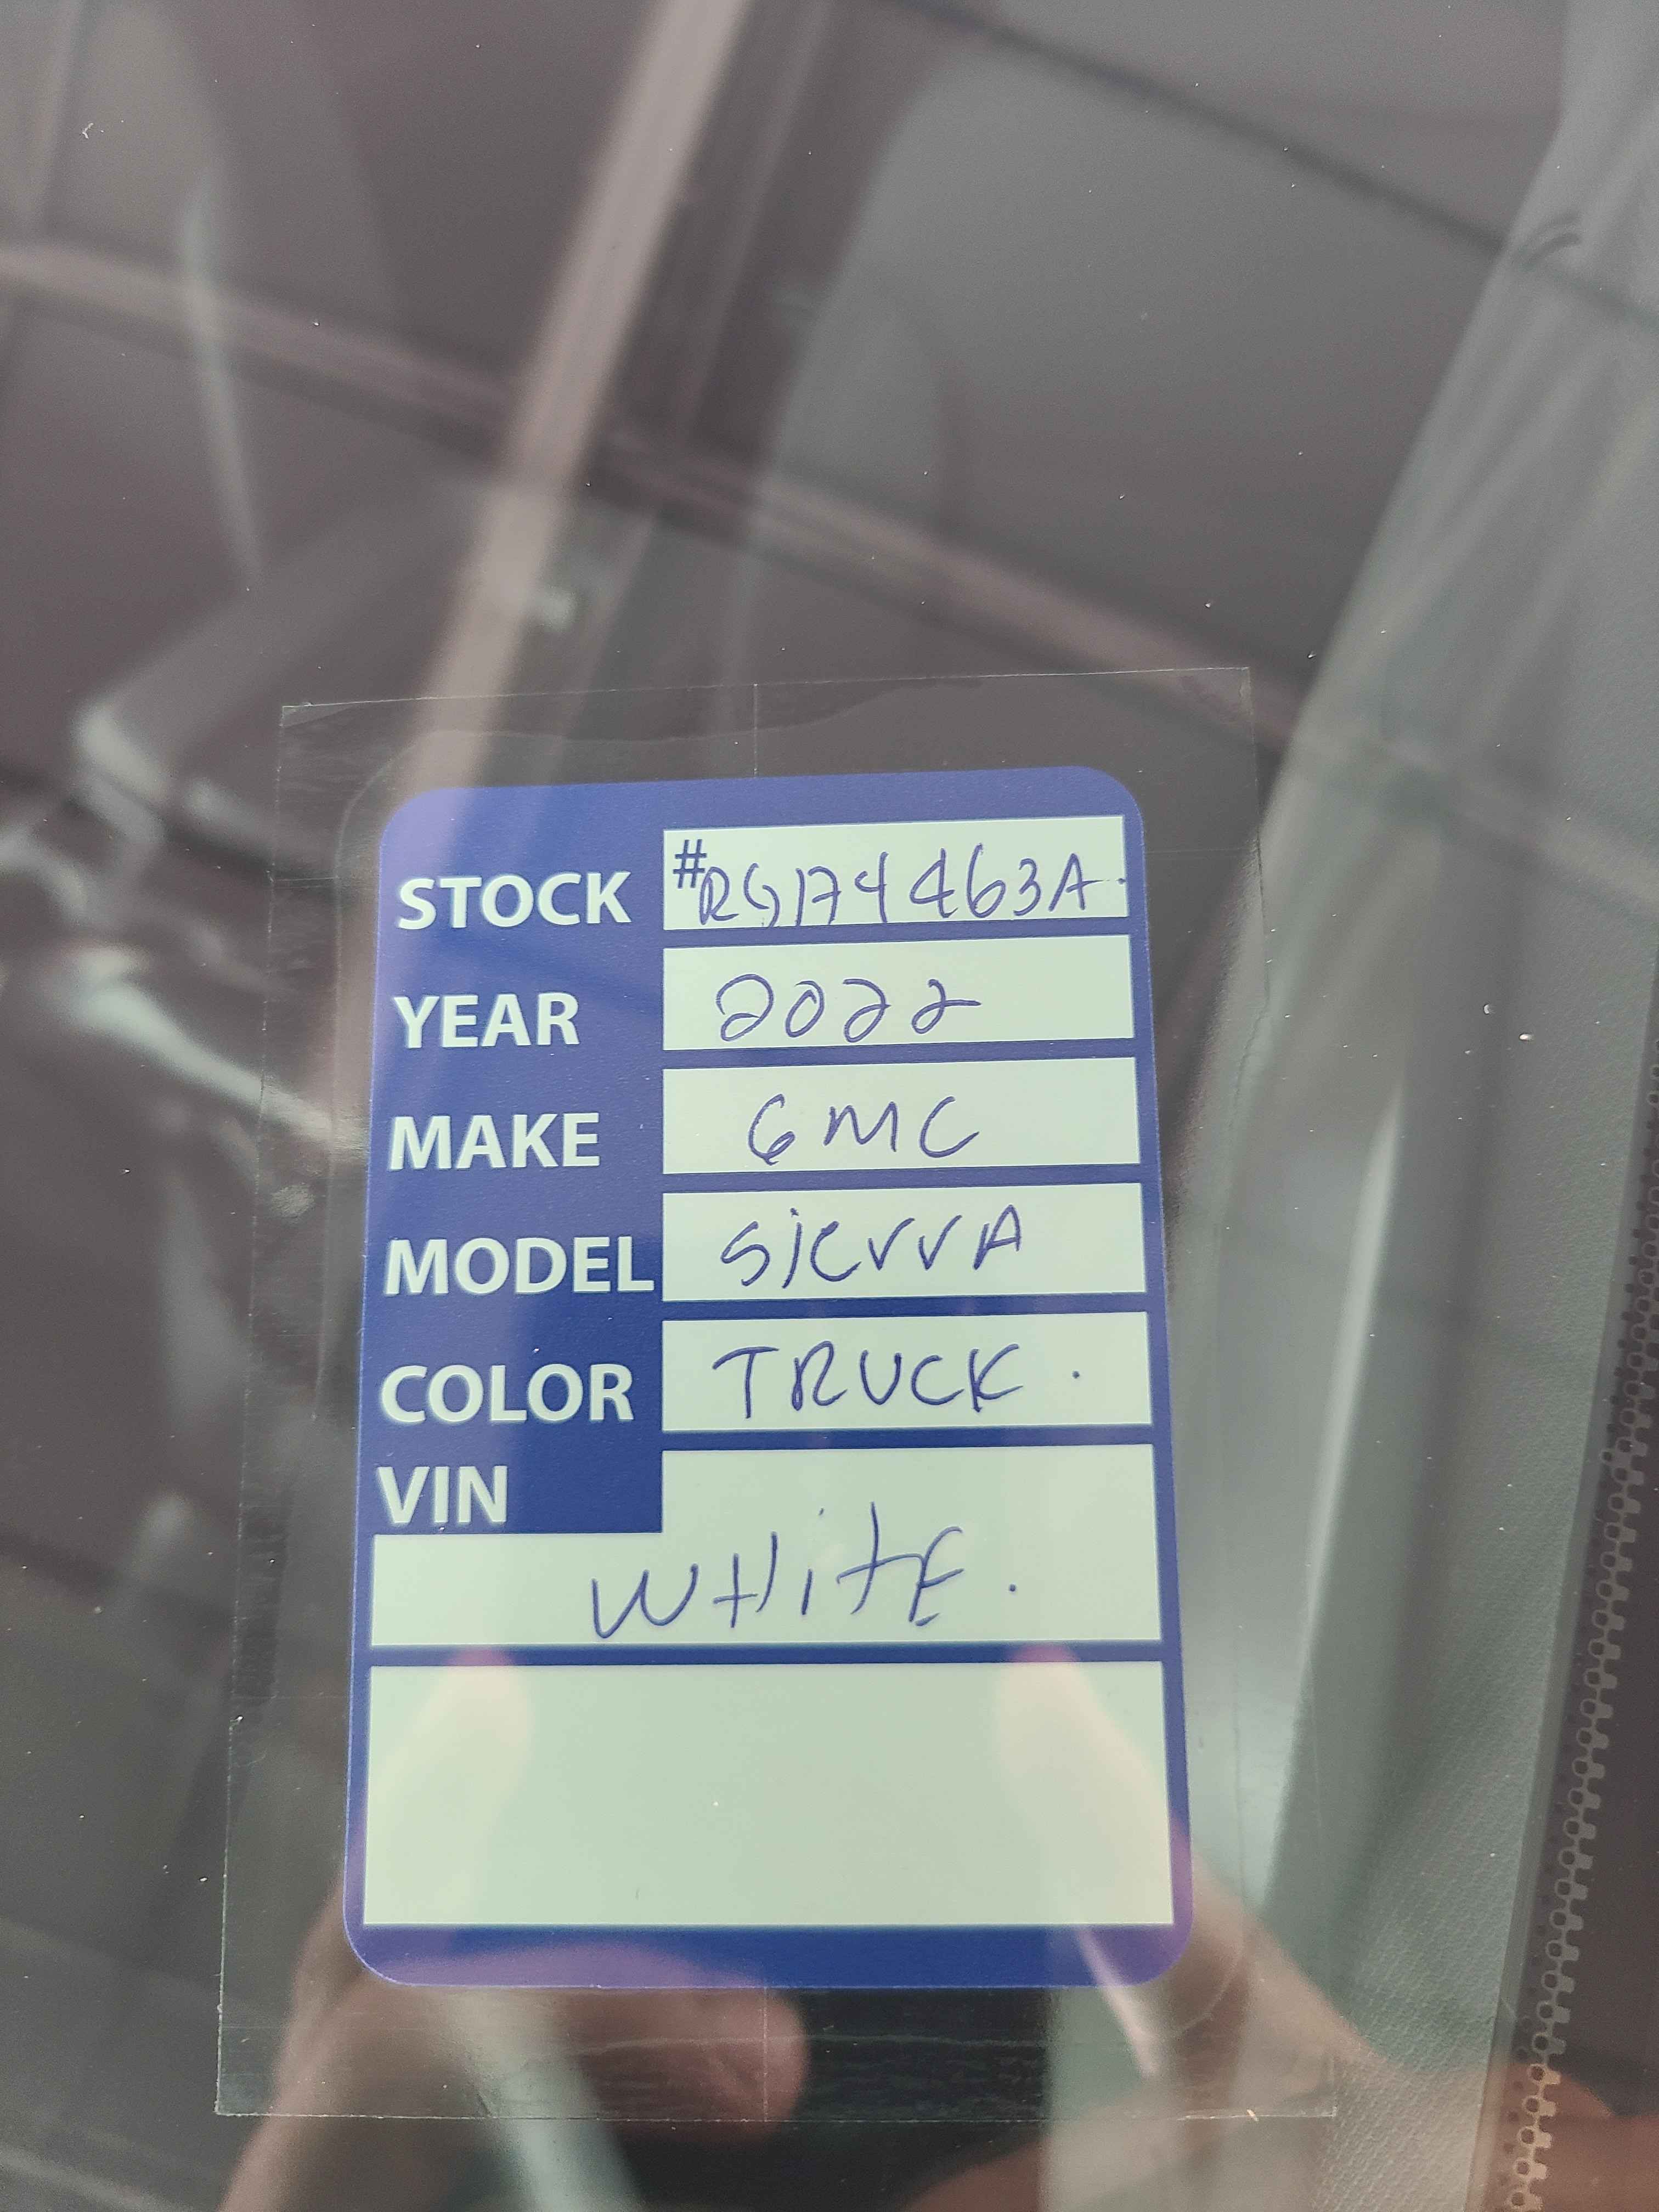 STOCK #RG174463A.
YEAR 2022
MAKE GMC
MODEL SierrA
COLOR TRUCK.
VIN
WHitE.